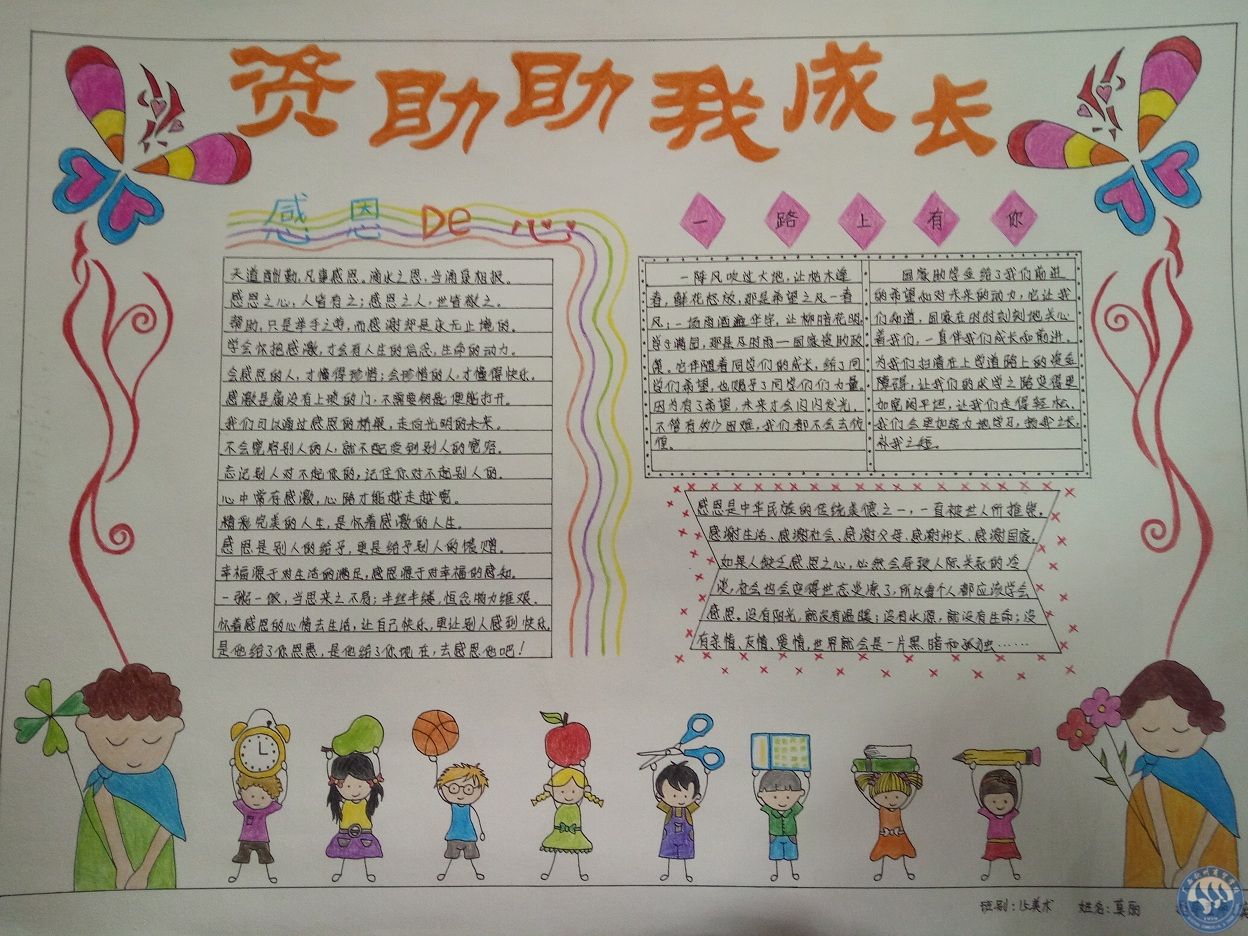 资助助我成长
感恩De心
天道酬勤,凡事感恩。滴水之恩,当涌泉相报。
感恩之心,人皆有之;感恩之人,世皆敬之。
帮助,只是举手之劳,而感谢却是永无止境的。
学会怀抱感激,才会有人生的信念,生命的动力。
会感恩的人,才懂得珍惜;会珍惜的人,才懂得快乐。
感激是扇没有上锁的门,不需要钥匙便能打开。
我们可以通过感恩的桥梁,走向光明的未来。
不会宽容别人的人,就不配受到别人的宽容。
忘记别人对不起你的,记住你对不起别人的。
心中常存感激,心路才能越走越宽。
精彩完美的人生,是怀着感激的人生。
感恩是别人的给予,更是给予别人的馈赠。
幸福源于对生活的满足,感恩源于对幸福的感知。
一粥一饭,当思来之不易;半丝半缕,恒念物力维艰。
怀着感恩的心情去生活,让自己快乐,更让别人感到快乐。
是他给了你恩惠,是他给了你现在,去感恩他吧!
一路上有你
一阵风吹过大地,让枯木逢
春,鲜花怒放,那是希望之风一春
风;一场雨洒遍华宇,让柳暗花明
学子满园,那是及时雨一国家资助政
策。它伴随着同学们的成长,给了同
学们希望,也赐予了同学们们力量。
因为有了希望,未来才会闪闪发光,
不管有多少困难,我们都不会去依
偎。
国家助学金给了我们前进
的希望和对未来的动力,它让我
们知道,国家在时时刻刻地关心
着我们,一直伴我们成长和前进。
为我们扫清在上学道路上的资金
障碍,让我们的求学之路变得更
加宽阔平坦,让我们走得轻松。
我们会更加努力地学习,换我之长,
补我之短。
感恩是中华民族的传统美德之一,一直被世人所推崇。
感谢生活、感谢社会、感谢父母、感谢师长、感谢国家。
如果人缺乏感恩之心,必然会导致人际关系的冷
淡,社会也会变得世态炎凉了,所以每个人都应该学会
感恩。没有阳光,就没有温暖;没有水源,就没有生命;没
有亲情、友情、爱情,世界就会是一片黑暗和孤独……
班别:15美术 姓名:莫丽